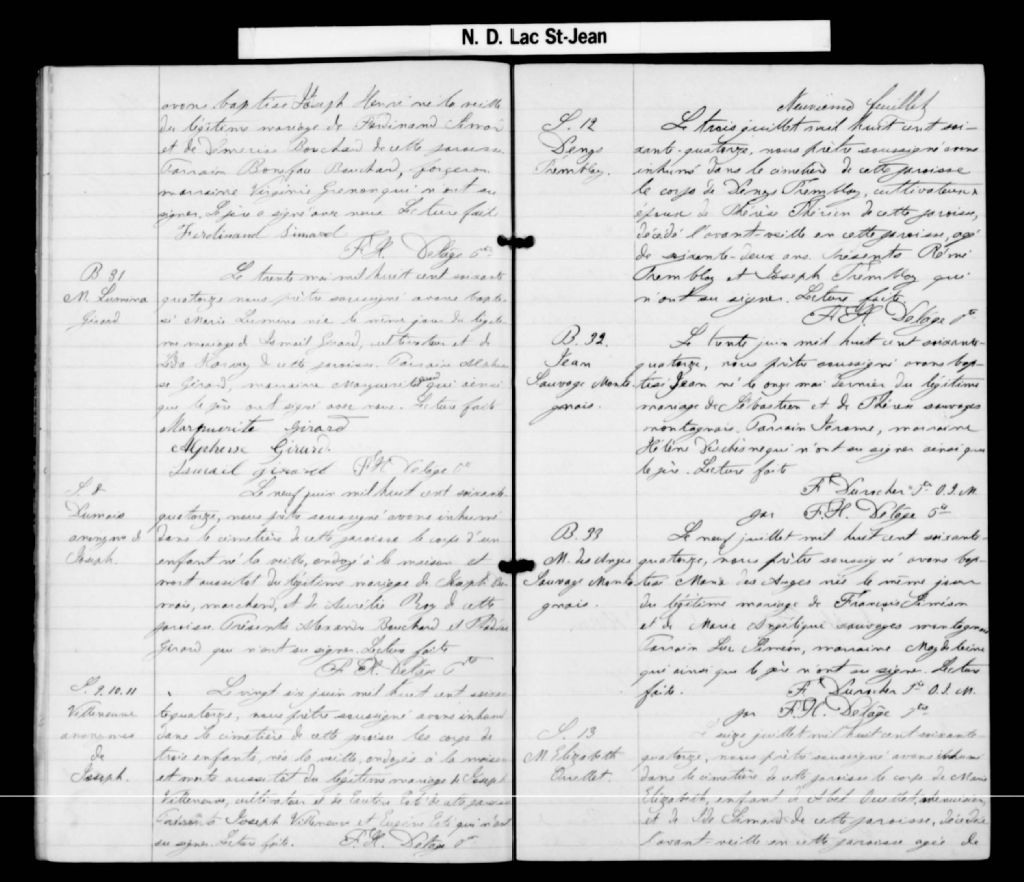 N. D. Lac St-Jean
avons baptisé Joseph Henri né la veille
du légitime mariage de Ferdinand Simard
et de Démerise Bouchard de cette paroisse
Parrain Boniface Bouchard, forgeron
marraine Virginie Grenon qui n'ont su
signer. Le père a signé avec nous. Lecture faite
Ferdinand Simard
F. H. Delâge Ptre
B 31
M. Lumina
Girard
Le trente mai mil huit cent soixante
quatorze nous prêtre soussigné avons bapti-
sé Marie Lumina née le même jour du légiti-
me mariage de Ismail Girard, cultivateur et de
de cette paroisse. Parrain Alphon
se Girard, marraine Marguerite Girard qui ainsi
que le père ont signé avec nous. Lecture faite
Marguerite Girard
Alphonse Girard.
Ismail Girard F. H. Delâge Ptre
S. 8
Dumais
anonyme de
Joseph.
Le neuf juin mil huit cent soixante-
quatorze, nous prêtre soussigné avons inhumé
dans le cimetière de cette paroisse le corps d'un
enfant né la veille, ondoyé à la maison et
mort aussitôt du légitime mariage de Joseph Du-
mais, marchand, et de Aurélie Roy de cette
paroisse Présents Alexandre Bouchard et
Girard qui n'ont su signer. Lecture faite
F. H. Delâge Ptre
S. 9. 10. 11
Villeneuve
anonymes
de
Joseph.
Le vingt six juin mil huit cent soixan
te quatorze, nous prêtre soussigné avons inhumé
dans le cimetière de cette paroisse les corps de
trois enfants, nés la veille, ondoyés à la maison
et morts aussitôt du légitime mariage de Joseph
Villeneuve, cultivateur et de Coté de cette paroisse
Présents Joseph Villeneuve et Eugène Coté qui n'ont
su signer. Lecture faite. F. H. Delâge Ptre
Neuvième feuillet
S. 12
Denys
Tremblay.
Le trois juillet mil huit cent soi-
xante-quatorze, nous prêtre soussigné avons
inhumé dans le cimetière de cette paroisse
le corps de Denys Tremblay, cultivateur
époux de Thérèse Thérien de cette paroisse,
décédé l'avant-veille en cette paroisse, agé
de soixante-deux ans. Présents Rémi
Tremblay et Joseph Tremblay qui
n'ont su signer. Lecture faite
F. H. Delâge Ptre
B. 32.
Jean
Sauvage Monta-
gnais.
Le trente juin mil huit cent soixante-
quatorze, nous prêtre soussigné avons bap-
tisé Jean né le onze mai dernier du légitime
mariage de Sébastien et de Thérèse sauvages
montagnais. Parrain Jérome, marraine
Hélène qui n'ont su signer ainsi que
le père. Lecture faite
F. Durocher Ptre O. I. M.
par F. H. Delâge Ptre
B. 33
M. des Anges
Sauvage Monta-
gnais.
Le neuf juillet mil huit cent soixante-
quatorze, nous prêtre soussigné avons bap-
tisé Marie des Anges née le même jour
du légitime mariage de François Siméon
et de Marie Angélique sauvages montagnais
Parrain Luc Siméon, marraine Magdeleine
qui ainsi que le père n'ont su signer. Lecture
faite.
F. Durocher Ptre O. I. M.
par F. H. Delâge Ptre
S. 13
M. Elizabeth
Ouellet.
Le seize juillet mil huit cent soixante-
quatorze, nous prêtre soussigné avons inhumé
dans le cimetière de cette paroisse le corps de Marie
Elizabeth, enfant de Abel Ouellet, menuisier,
et de Simard de cette paroisse, décédée
l'avant-veille en cette paroisse agée de